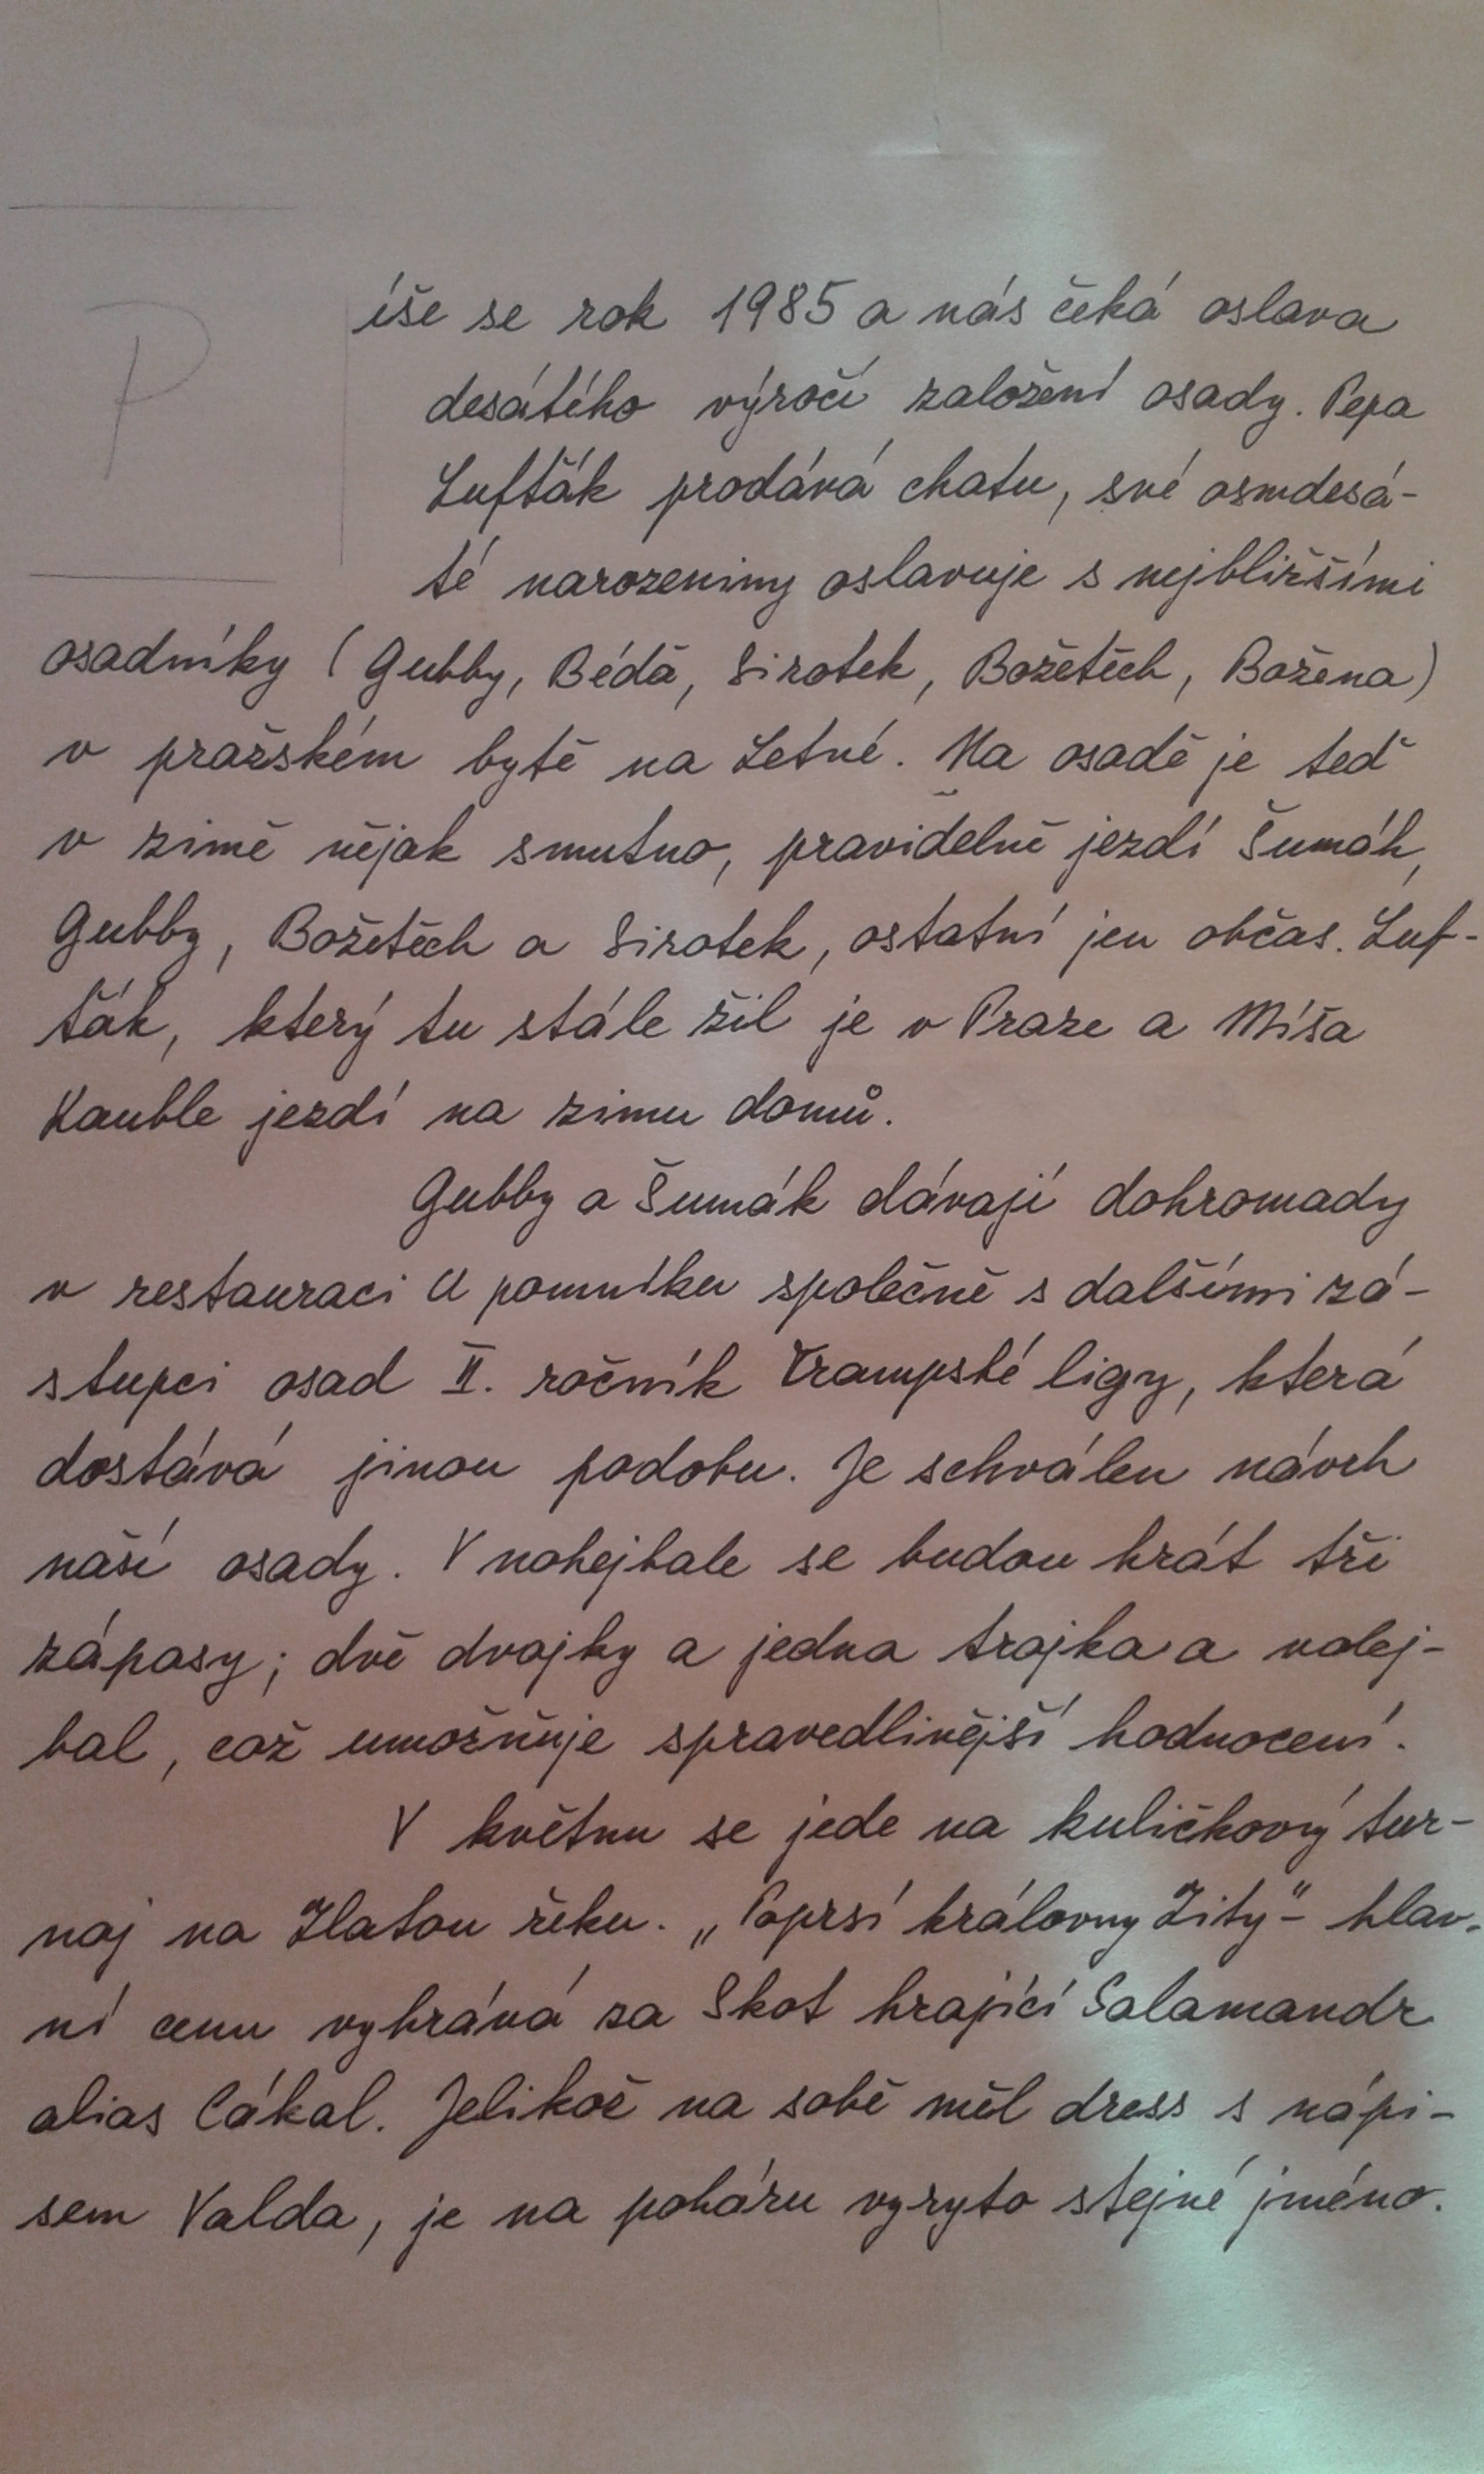 P
íše se rok 1985 a nás čeká oslava
desátého výročí založení osady. Pepa
Lufťák prodává chatu, své osmdesá-
té narozeniny oslavuje s nejbližšími
osadníky (Gubby, Béďa, Sirotek, Božetěch, Božena)
v pražském bytě na Letné. Na osadě je teď
v zimě nějak smutno, pravidelně jezdí Šumák,
Gubby, Božetěch a Sirotek, ostatní jen občas. Luf-
ťák, který tu stále žil je v Praze a Míša
Kauble jezdí na zimu domů.
Gubby a Šumák dávají dohromady
v restauraci U pomníku společně s dalšími zá-
stupci osad II. ročník Trampské ligy, která
dostává jinou podobu. Je schválen návrh
naší osady. V nohejbale se budou hrát tři
zápasy; dvě dvojky a jedna trojka a volej-
bal, což umožňuje spravedlivější hodnocení.
V květnu se jede na kuličkový tur-
naj na Zlatou řeku. „Poprsí královny Zity" - hlav-
ní cenu vyhrává za Skot hrající Salamandr
alias Cákal. Jelikož na sobě měl dress s nápi-
sem Valda, je na poháru vyryto stejné jméno.